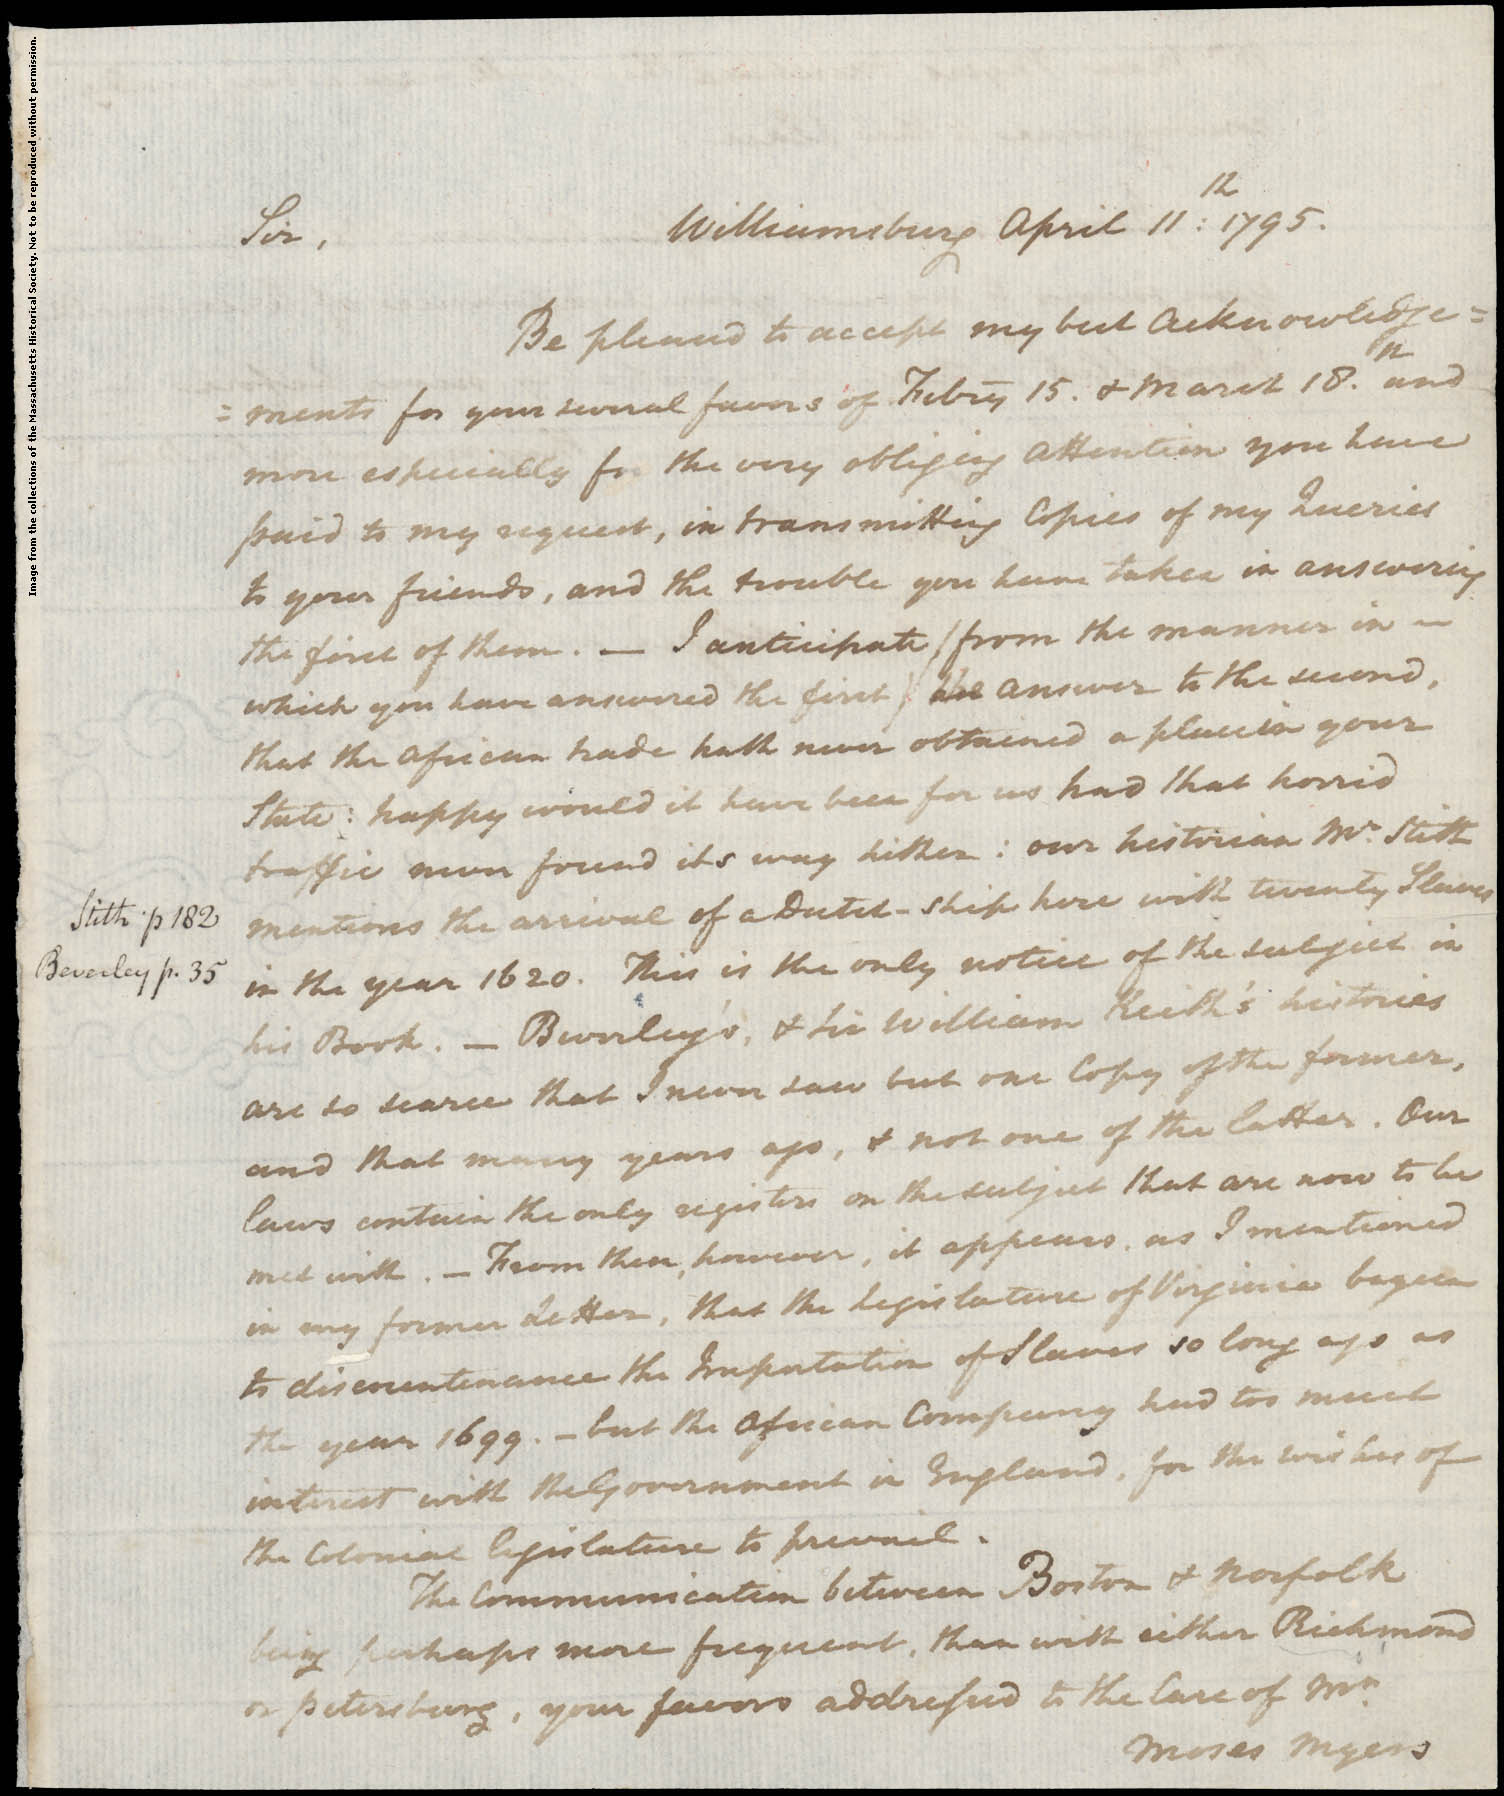 Image from the collections of the Massachusetts Historical Society. Not to be reproduced without permission.
Sir,
Williamsburg April 11:th 1795.
Be pleased to accept my best acknowledge=
=ments for your several favors of Febry 15. & March 18.th and
more especially for the very obliging attention you have
paid to my request, in transmitting Copies of my Queries
to your friends, and the trouble you have taken in answering
the first of them. — I anticipate (from the manner in —
which you have answered the first) the answer to the second,
that the African trade hath never obtained a place in your
State: happy would it have been for us had that horrid
traffic never found its way hither: our historian Mr. Stith
mentions the arrival of a Dutch-ship here with twenty Slaves
Stith p 182
Beverley p. 35
in the year 1620. This is the only notice of the subject in
his Book. — Beverley's, & Sir William Keith's histories
are so scarce that I never saw but one Copy of the former,
and that many years ago, & not one of the latter. Our
laws contain the only registers on the subject that are now to be
met with. — From them, however, it appears, as I mentioned
in my former Letter, that the legislature of Virginia began
to discountenance the Importation of Slaves so long ago as
the year 1699. — but the African Company had too much
interest with the Government in England, for the wishes of
the Colonial legislature to prevail.
The Communication between Boston & Norfolk
being perhaps more frequent, than with either Richmond
or Petersburg, your favors addressed to the Care of Mr.
Moses Myers